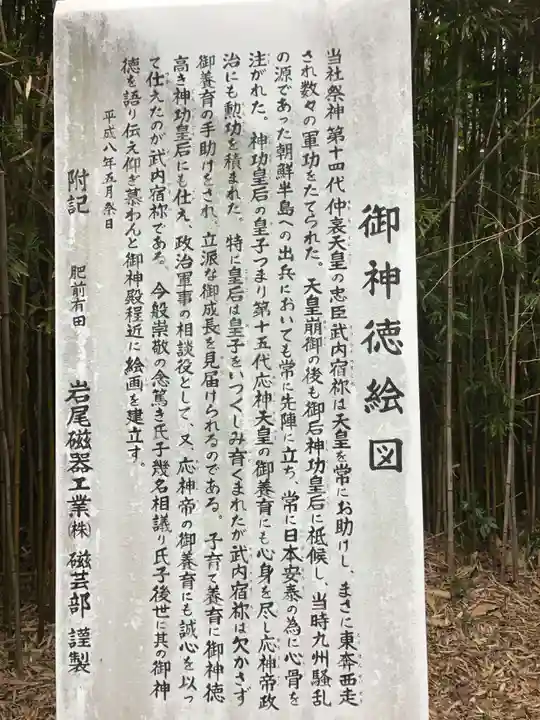 御神徳絵図
当社祭神第十四代仲哀天皇の忠臣武内宿祢は天皇を常にお助けし、まさに東奔西走
され数々の軍功をたてられた。天皇崩御の後も御后神功皇后に祗候し、当時九州騒乱
の源であった朝鮮半島への出兵においても常に先陣に立ち、常に日本安泰の為に心骨を
注がれた。神功皇后の皇子つまり第十五代応神天皇の御養育にも心身を尽し応神帝政
治にも勲功を積まれた。特に皇后は皇子をいつくしみ育くまれたが武内宿祢は欠かさず
御養育の手助けをされ、立派な御成長を見届けられるのである。子育て養育に御神徳
高き神功皇后にも仕え、政治軍事の相談役として、又、応神帝の御養育にも誠心を以っ
て仕えたのが武内宿祢である。今般崇敬の念篤き氏子幾名相議り氏子後世に其の御神
徳を語り伝え仰ぎ慕わんと御神殿程近に絵画を建立す。
平成八年五月祭日
附記 肥前有田 岩尾磁器工業㈱磁芸部 謹製